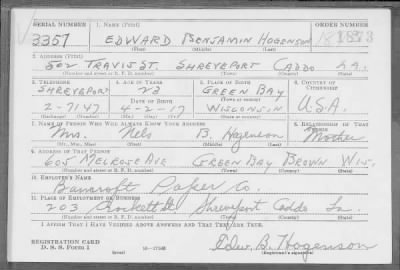 SERIAL NUMBER 1. NAME (Print) ORDER NUMBER
3357 EDWARD BENJAMIN HOGENSON
(First) (Middle) (Last)
2. ADDRESS (Print)
502 TRAVIS ST. SHREVEPORT CADDO LA.
(Number and street or R. F. D. number) (Town) (County) (State)
3. TELEPHONE 4. AGE IN YEARS 5. PLACE OF BIRTH 6. COUNTRY OF CITIZENSHIP
SHREVEPORT 23 GREEN BAY
DATE OF BIRTH (Town or county)
2-7147 4-2-17 WISCONSIN U.S.A.
(Exchange) (Number) (Mo.) (Day) (Yr.) (State or country)
7. NAME OF PERSON WHO WILL ALWAYS KNOW YOUR ADDRESS 8. RELATIONSHIP OF THAT PERSON
Mrs. Nels B. Hogenson Mother
(Mr., Mrs., Miss) (First) (Middle) (Last)
9. ADDRESS OF THAT PERSON
605 MELROSE AVE GREEN BAY BROWN WIS.
(Number and street or R. F. D. number) (Town) (County) (State)
10. EMPLOYER'S NAME
Bancroft Paper Co.
11. PLACE OF EMPLOYMENT OR BUSINESS
203 Crockett St Shreveport Caddo La.
(Number and street or R. F. D. number) (Town) (County) (State)
I AFFIRM THAT I HAVE VERIFIED ABOVE ANSWERS AND THAT THEY ARE TRUE.
REGISTRATION CARD
D. S. S. Form 1 (over) Edw. B. Hogenson
(Registrant's signature)